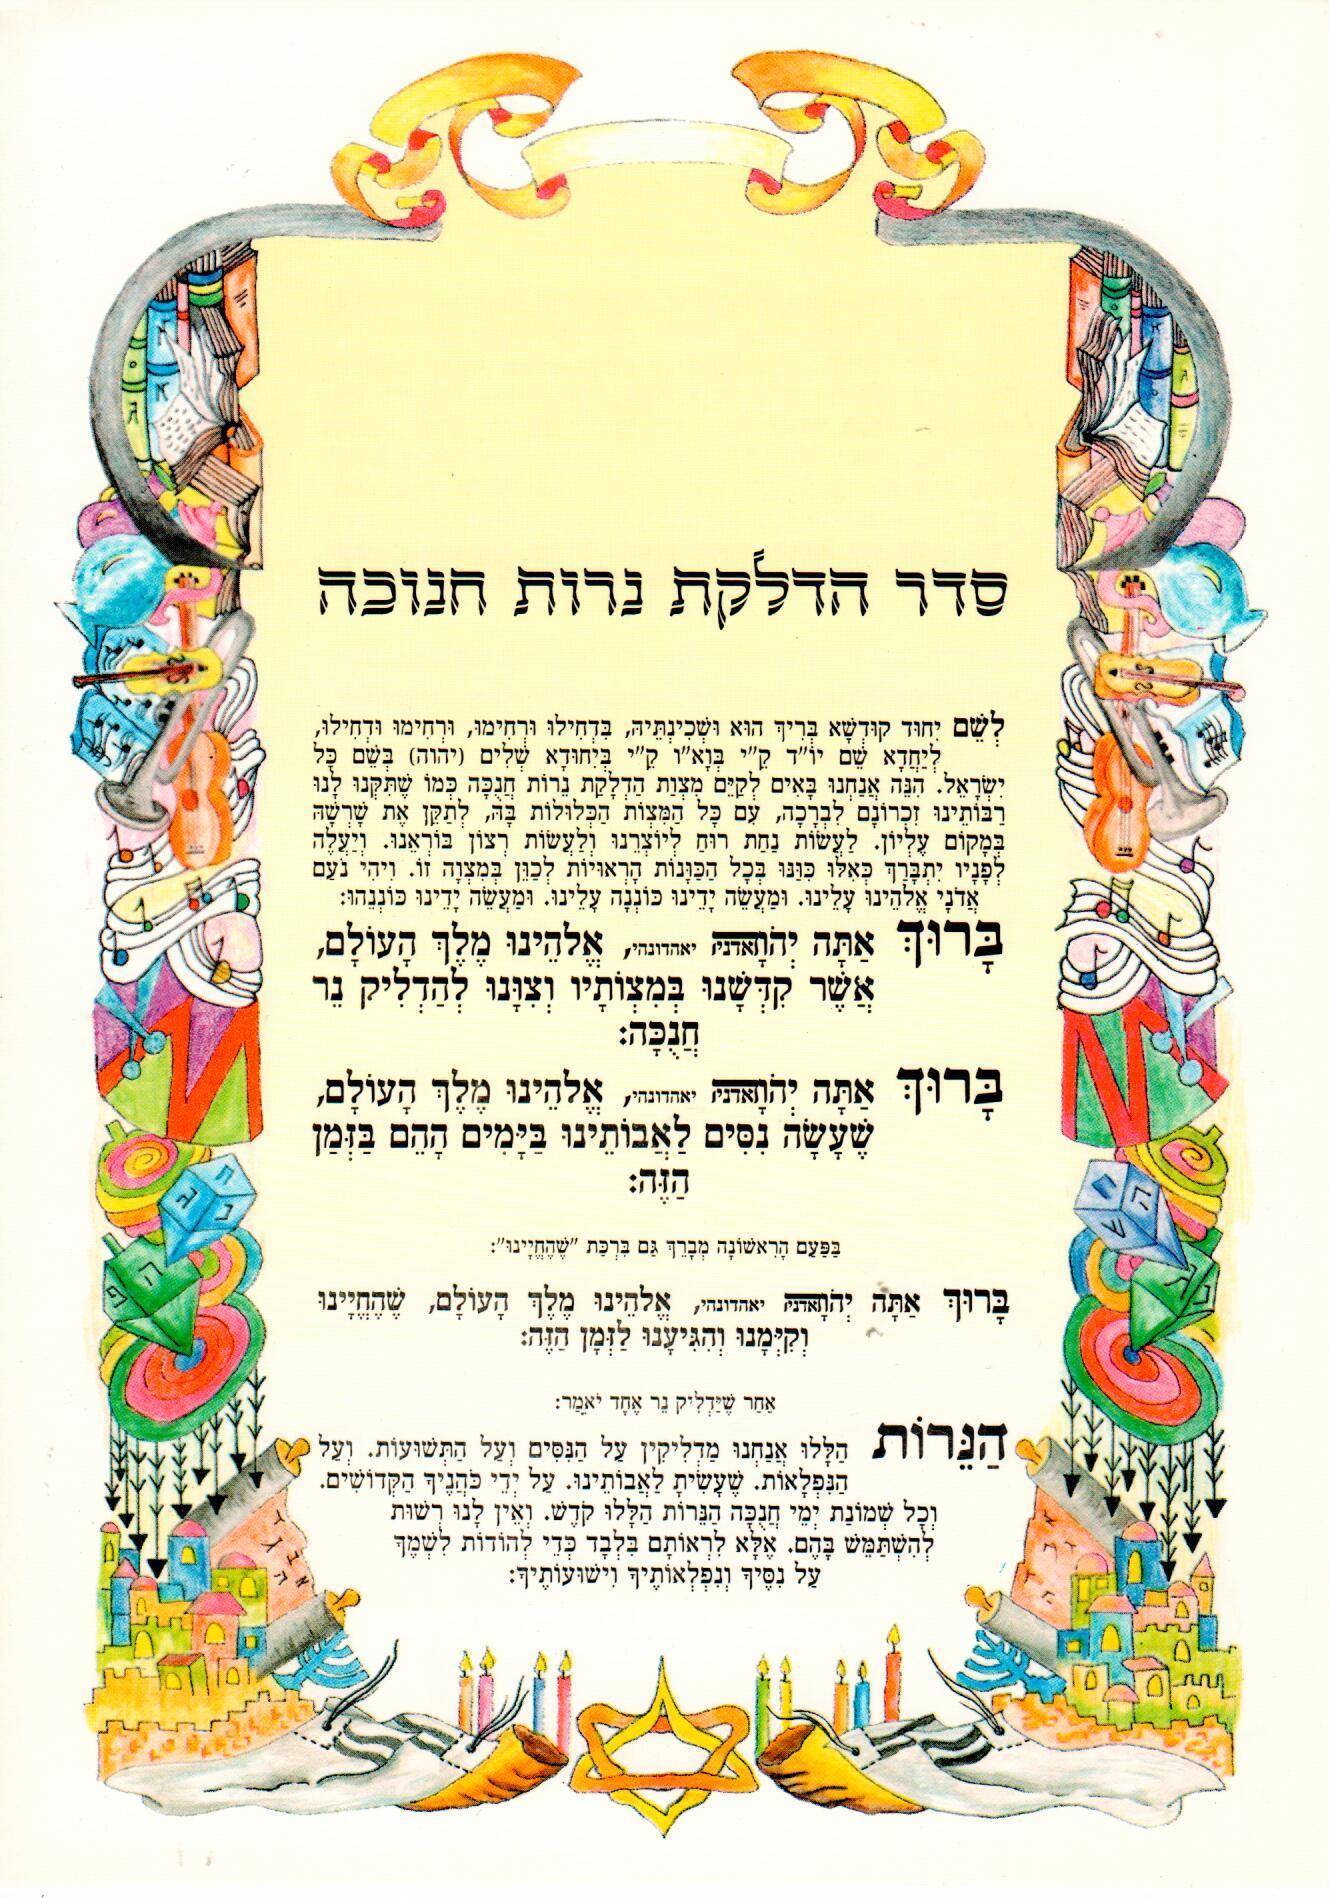 סדר הדלקת נרות חנוכה
לְשֵׁם יִחוּד קוּדְשָׁא בְּרִיךְ הוּא וּשְׁכִינְתֵּיהּ, בִּדְחִילוּ וּרְחִימוּ, וּרְחִימוּ וּדְחִילוּ,
לְיַחֲדָא שֵׁם יוֹ"ד קֵ"י בְּוָא"ו קֵ"י בְּיִחוּדָא שְׁלִים (יהוה) בְּשֵׁם כָּל
יִשְׂרָאֵל. הִנֵּה אֲנַחְנוּ בָּאִים לְקַיֵּם מִצְוַת הַדְלָקַת נֵרוֹת חֲנֻכָּה כְּמוֹ שֶׁתִּקְּנוּ לָנוּ
רַבּוֹתֵינוּ זִכְרוֹנָם לִבְרָכָה, עִם כָּל הַמִּצְוֹת הַכְּלוּלוֹת בָּהּ, לְתַקֵּן אֶת שָׁרְשָׁהּ
בְּמָקוֹם עֶלְיוֹן. לַעֲשׂוֹת נַחַת רוּחַ לְיוֹצְרֵנוּ וְלַעֲשׂוֹת רְצוֹן בּוֹרְאֵנוּ. וְיַעֲלֶה
לְפָנָיו יִתְבָּרַךְ כְּאִלּוּ כִּוַּנּוּ בְּכָל הַכַּוָּנוֹת הָרְאוּיוֹת לְכַוֵּן בְּמִצְוָה זוֹ. וִיהִי נֹעַם
אֲדֹנָי אֱלֹהֵינוּ עָלֵינוּ. וּמַעֲשֵׂה יָדֵינוּ כּוֹנְנָה עָלֵינוּ. וּמַעֲשֵׂה יָדֵינוּ כּוֹנְנֵהוּ:
בָּרוּךְ אַתָּה יְהֹוָאדניה יאהדונהי, אֱלֹהֵינוּ מֶלֶךְ הָעוֹלָם,
אֲשֶׁר קִדְּשָׁנוּ בְּמִצְוֹתָיו וְצִוָּנוּ לְהַדְלִיק נֵר
חֲנֻכָּה:
בָּרוּךְ אַתָּה יְהֹוָאדניה יאהדונהי, אֱלֹהֵינוּ מֶלֶךְ הָעוֹלָם,
שֶׁעָשָׂה נִסִּים לַאֲבוֹתֵינוּ בַּיָּמִים הָהֵם בַּזְּמַן
הַזֶּה:
בַּפַּעַם הָרִאשׁוֹנָה מְבָרֵךְ גַּם בִּרְכַּת "שֶׁהֶחֱיָינוּ":
בָּרוּךְ אַתָּה יְהֹוָאדניה יאהדונהי, אֱלֹהֵינוּ מֶלֶךְ הָעוֹלָם, שֶׁהֶחֱיָינוּ
וְקִיְּמָנוּ וְהִגִּיעָנוּ לַזְּמָן הַזֶּה:
אַחַר שֶׁיַּדְלִיק נֵר אֶחָד יֹאמַר:
הַנֵּרוֹת הַלָּלוּ אֲנַחְנוּ מַדְלִיקִין עַל הַנִּסִּים וְעַל הַתְּשׁוּעוֹת. וְעַל
הַנִּפְלָאוֹת. שֶׁעָשִׂיתָ לַאֲבוֹתֵינוּ. עַל יְדֵי כֹּהֲנֶיךָ הַקְּדוֹשִׁים.
וְכָל שְׁמוֹנַת יְמֵי חֲנֻכָּה הַנֵּרוֹת הַלָּלוּ קֹדֶשׁ. וְאֵין לָנוּ רְשׁוּת
לְהִשְׁתַּמֵּשׁ בָּהֶם. אֶלָּא לִרְאוֹתָם בִּלְבָד כְּדֵי לְהוֹדוֹת לִשְׁמֶךָ
עַל נִסֶּיךָ וְנִפְלְאוֹתֶיךָ וִישׁוּעוֹתֶיךָ: